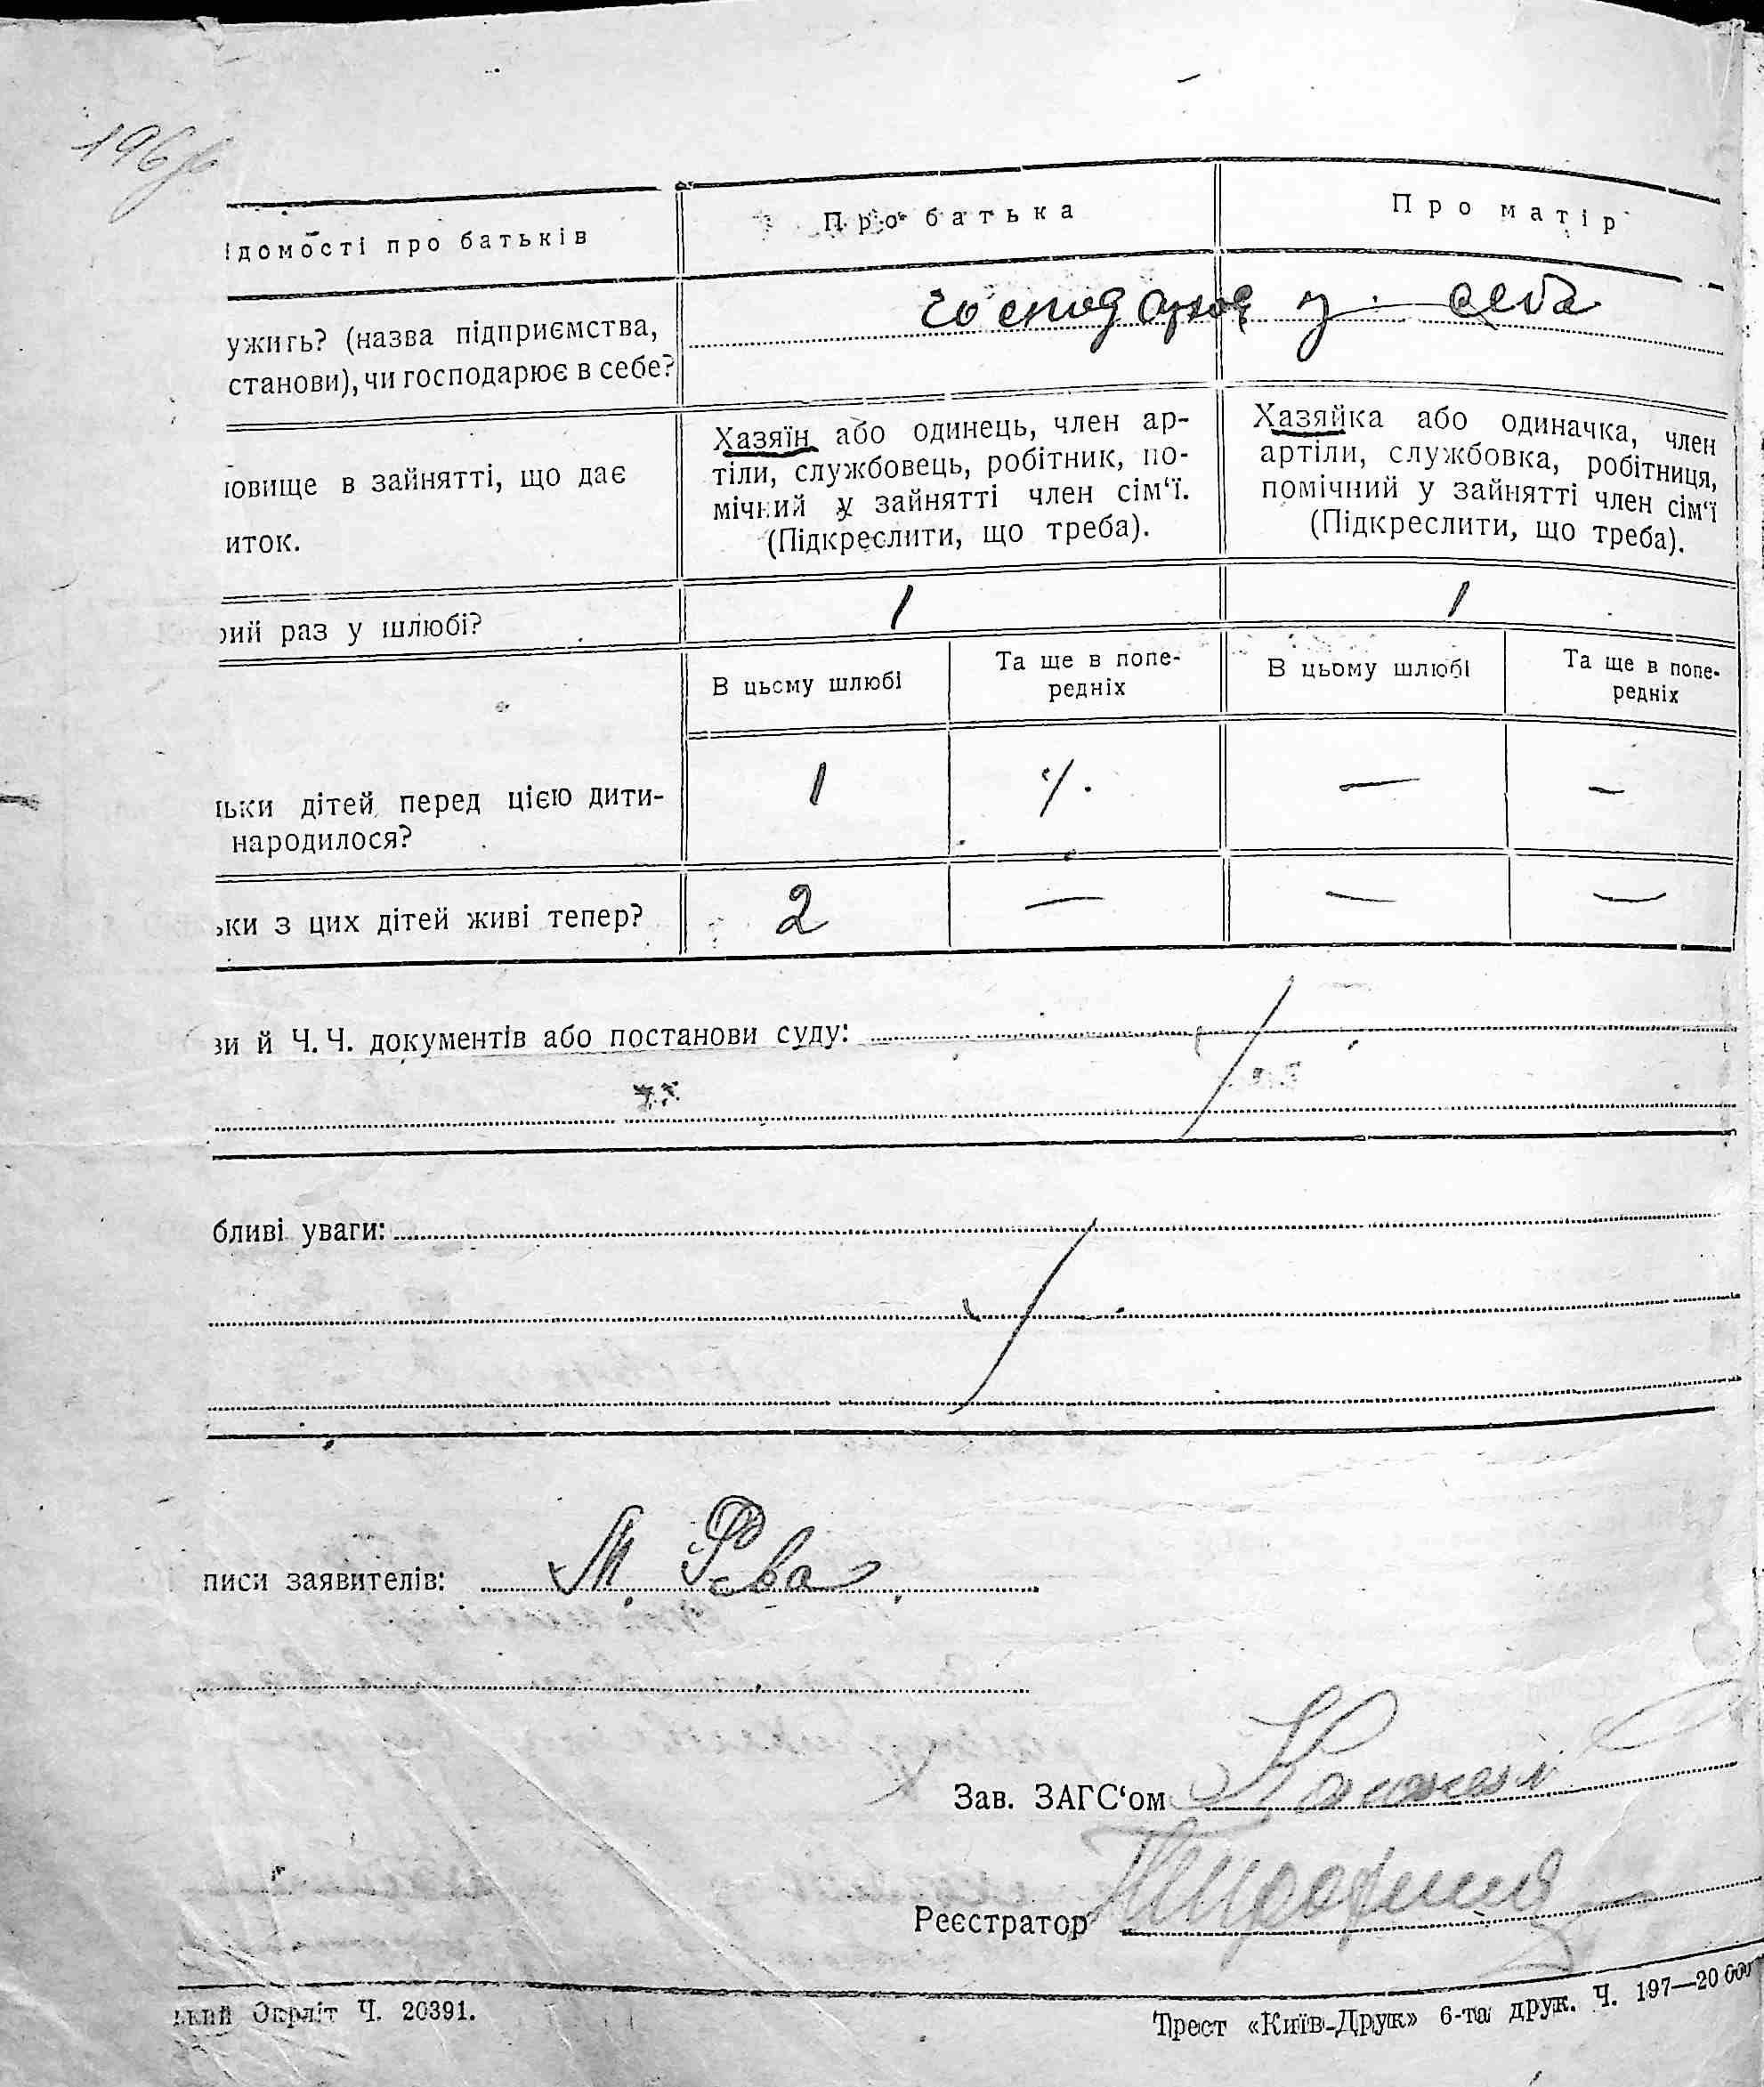 ідомості про батьків
Про батька
Про матір
господарює у себе
ужить? (назва підприємства,
станови), чи господарює в себе?
овище в зайнятті, що дає
иток.
Хазяїн або одинець, член ар-
тіли, службовець, робітник, по-
мічний у зайнятті член сім‘ї.
(Підкреслити, що треба).
Хазяйка або одиначка, член
артіли, службовка, робітниця,
помічний у зайнятті член сім‘ї
(Підкреслити, що треба).
рий раз у шлюбі?
1
1
В цьому шлюбі
Та ще в попе-
редніх
В цьому шлюбі
Та ще в попе-
редніх
льки дітей перед цією дити-
народилося?
1
٪
—
—
ьки з цих дітей живі тепер?
2
—
—
—
ви й Ч. Ч. документів або постанови суду:
бливі уваги:
писи заявителів: М Рева
Зав. ЗАГС‘ом
Реєстратор
ький Окрліт Ч. 20391.
Трест «Київ-Друк» 6-та друк. Ч. 197—20 000